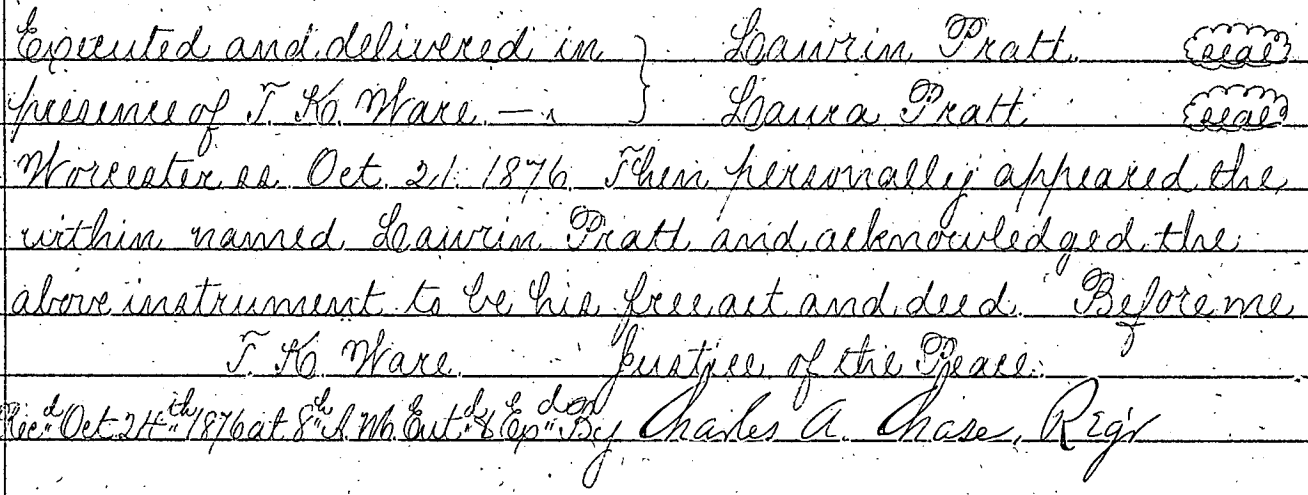 Executed and delivered in } Lawrin Pratt (seal)
presence of T. K. Ware — } Laura Pratt (seal)
Worcester ss. Oct. 21. 1876. Then personally appeared the
within named Lawrin Pratt and acknowledged the
above instrument to be his free act and deed. Before me
T. K. Ware. Justice of the Peace.
Rec'd Oct 24th 1876 at 8h A.M. Ent'd & Ex'd By Charles A. Chase, Reg'r